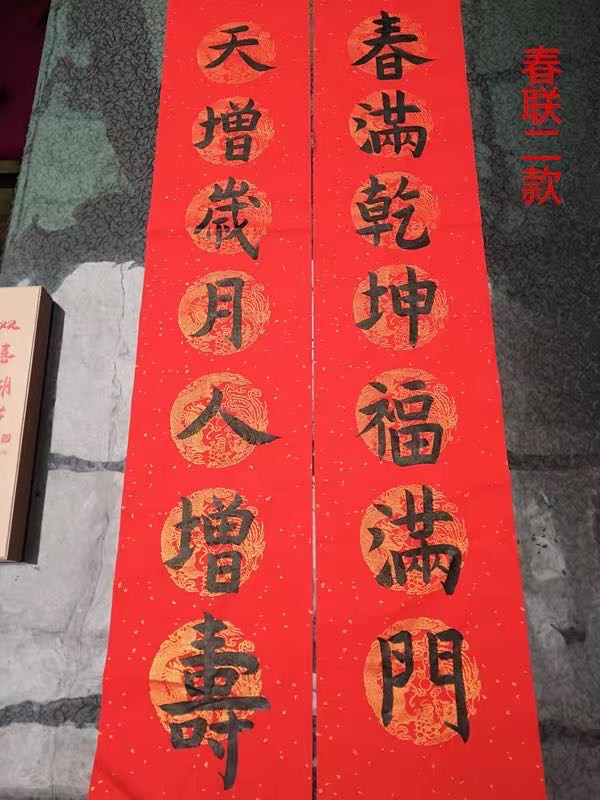 天增歲月人增壽
春滿乾坤福滿門
春联二款
双喜